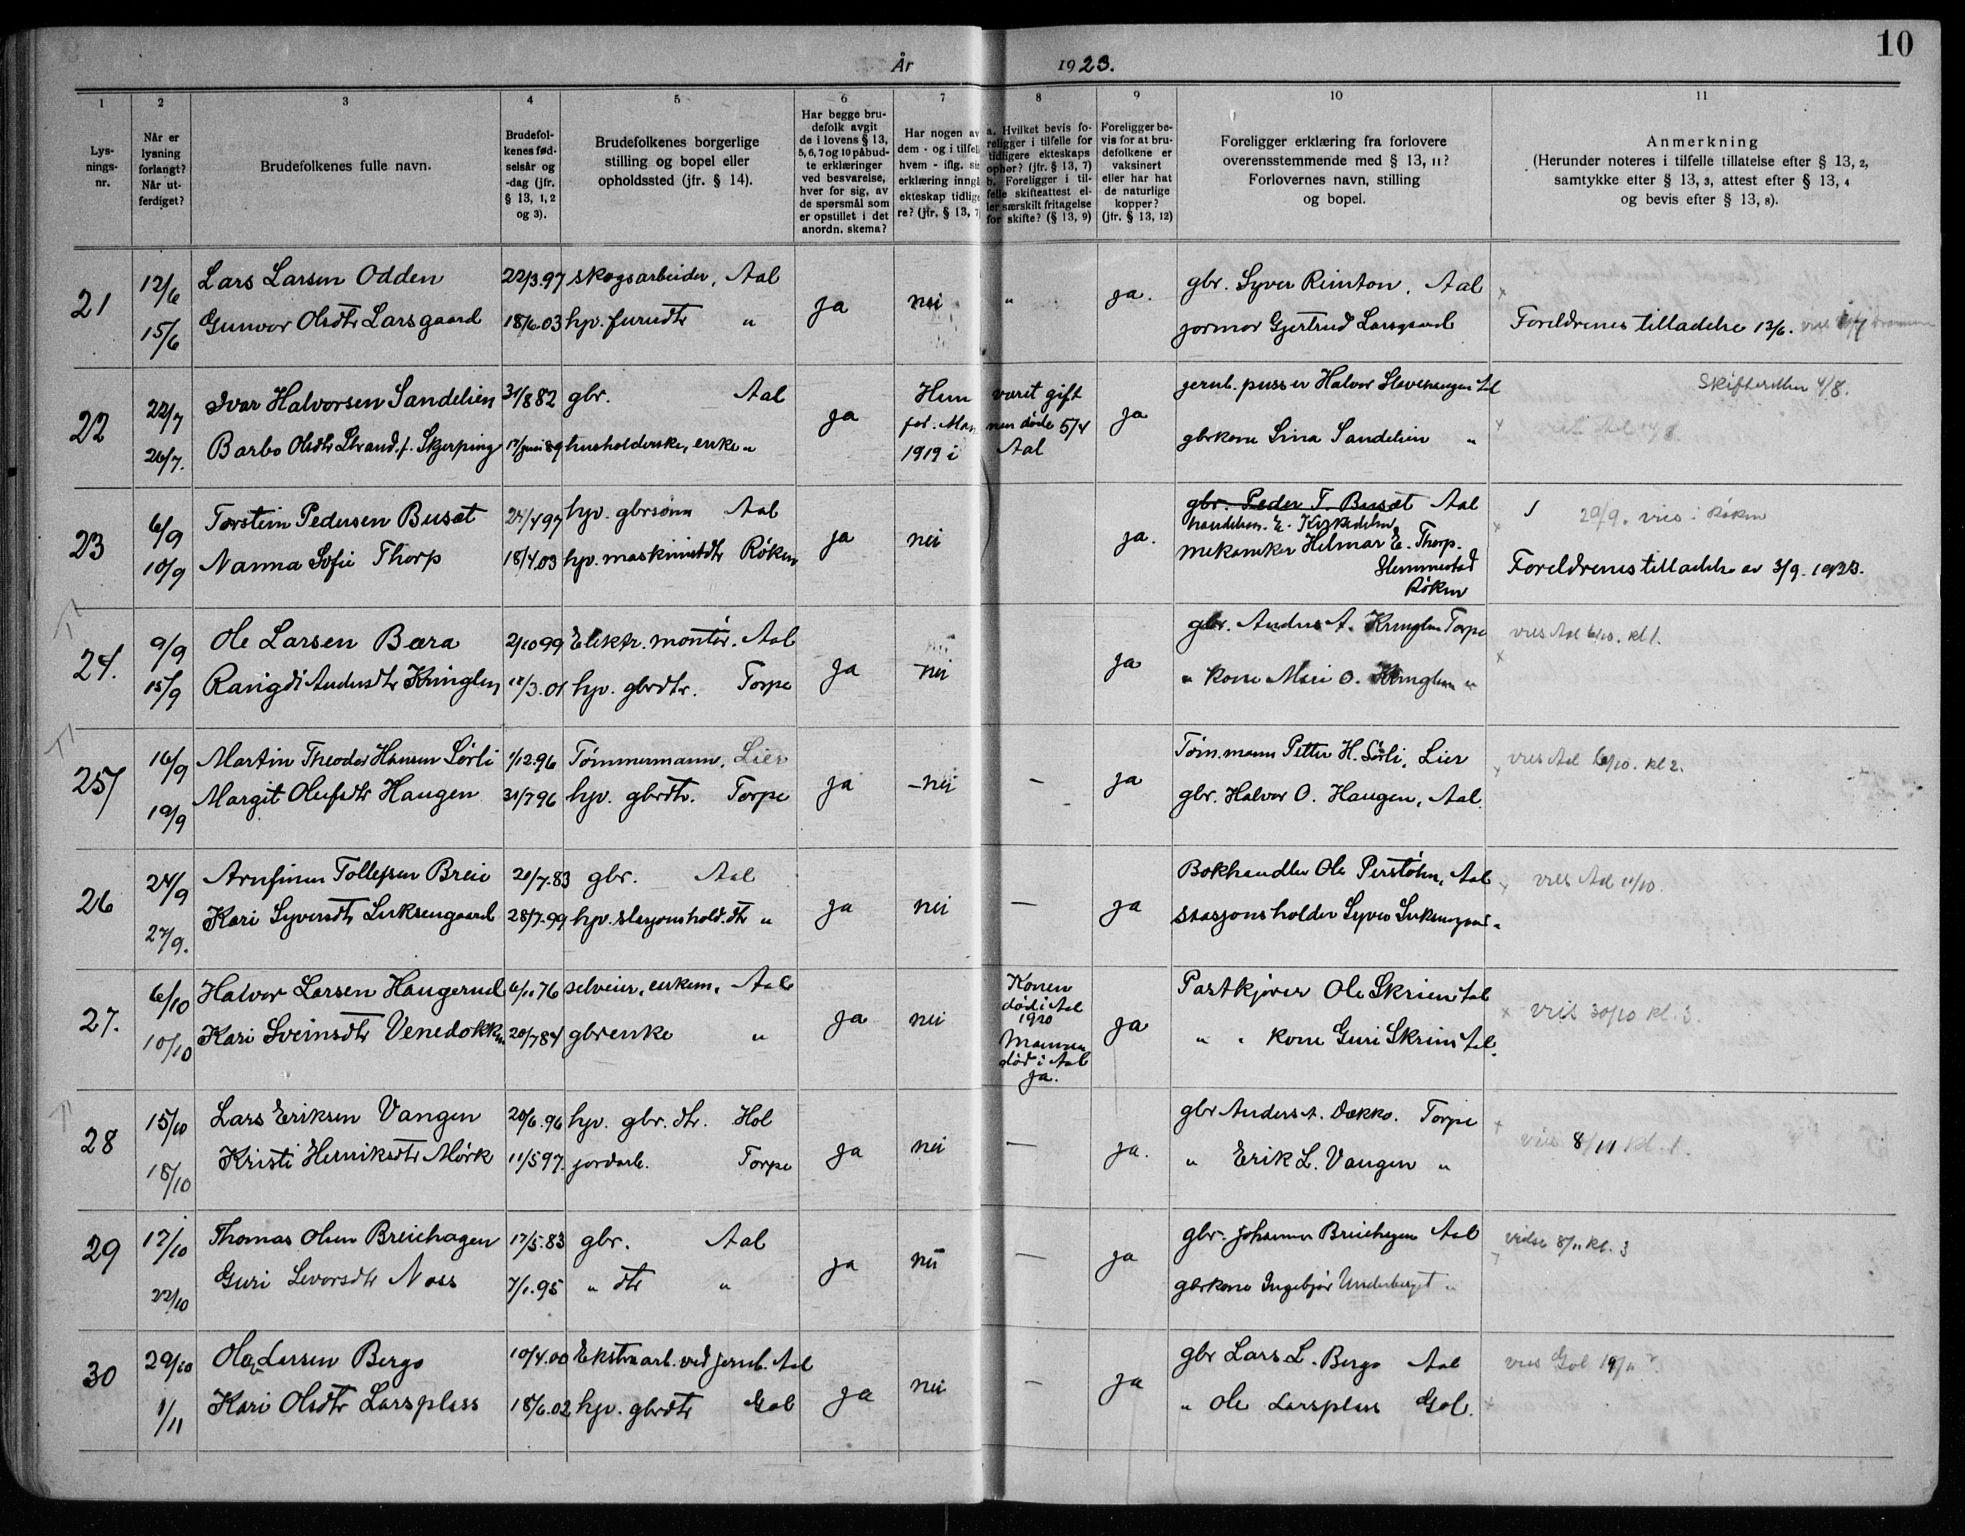 10
År 1923.
1 2 3 4 5 6 7 8 9 10 11
Lysningsnr.
Når er lysning forlangt? Når utferdiget?
Brudefolkenes fulle navn.
Brudefolkenes fødselsår og -dag (jfr. § 13, 1, 2 og 3).
Brudefolkenes borgerlige stilling og bopel eller opholdssted (jfr. § 14).
Har begge brudefolk avgit de i lovens § 13, 5, 6, 7 og 10 påbudte erklæringer ved besvarelse, hver for sig, av de spørsmål som er opstillet i det anordn. skema?
Har nogen av dem - og i tilfelle hvem - iflg. sin erklæring inngå ekteskap tidligere? (jfr. § 13, 7
a. Hvilket bevis foreligger i tilfelle for tidligere ekteskaps ophør? (jfr. § 13, 7) b. Foreligger i tilfelle skifteattest eller særskilt fritagelse for skifte? (§ 13, 9)
Foreligger bevis for at brudefolkene er vaksinert eller har hat de naturlige kopper? (jfr. § 13, 12)
Foreligger erklæring fra forlovere overensstemmende med § 13, 11? Forlovernes navn, stilling og bopel.
Anmerkning (Herunder noteres i tilfelle tillatelse efter § 13, 2, samtykke efter § 13, 3, attest efter § 13, 4 og bevis efter § 13, 8).
21 12/6 Lars Larsen Odden 22/3.97 skogsarbeider, Aal ja nei " ja. gbr. Syver Rimton, Aal
15/6 Gunvor Olsdtr Larsgaard 18/6.03 hjv. furudtr " jormor Gjertrud Larsgaard Foreldrenes tilladelse 13/6.
22 22/7 Ivar Halvorsen Sandelien 31/8 82 gbr. Aal ja Hun varit gift før. Mannen døde 5/4 1919 i Aal ja jernb. pusser Halvor Slevehaugen Aal Skifteretten 4/8.
26/7. Barbo Olsdtr Strand f. Skjerping 17/juni 89 husholderske, enke " gbrkone Sina Sandelien "
23 6/9 Torstein Pedersen Busæt 24/4 97 hjv. gbrsønn Aal ja nei ja. gbr. Peder T. Busæt Aal 29/9. vies i Røken
handelsm. E. Kirkedelen
10/9 Nanna Sofie Thorp 18/4.03 hjv. maskinistdtr Røken mekaniker Helmar E. Thorp. Slemmestad Røken Foreldrenes tilladelse av 3/9. 1923.
24. 9/9 Ole Larsen Bæra 2/10 99 Elektr. montør. Aal ja nei ja gbr. Anders A. Kringlen Torpe vies Aal 6/10. kl 1.
15/9 Rangdi Andersdtr Kringlen 12/3.01 hjv. gbrdtr. Torpe " kone Mari O. Kringlen "
25 16/9 Martin Theodor Hansen Sørli 1/12.96 Tømmermann, Lier ja nei — ja Tøm.mann Petter H. Sørli, Lier vies Aal 6/10. kl 2.
19/9 Margit Olufsdtr Haugen 31/7 96 hjv. gbrdtr. Torpe gbr. Halvor O. Haugen, Aal.
26 24/9 Arnfinn Tollefsen Breie 21/7.83 gbr. Aal ja nei — ja Bokhandler Ole Perstølen, Aal vies Aal 11/10.
27/9. Kari Syversdtr Sirksengaard 28/7.99 hjv. stasjonshold. dtr " stasjonsholder Syver Sirksengaard "
27. 6/10 Halvor Larsen Haugerud 6/11 76 selveier, enkem. Aal ja nei Konen død i Aal 1920 ja Postkjører Ole Skrien Aal vies 30/10 kl. 3.
10/10 Kari Sveinsdtr Venedokken 20/7 84 gbrenke " Mannen død i Aal ja. " " kone Guri Skrien Aal.
28 15/10 Lars Eriksen Vangen 20/6.96 hjv. gbr. dtr. Hol ja nei — ja. gbr Anders A. Dokko. Torpe vies 8/11 kl. 1.
18/10 Kristi Henriksdtr Mørk 11/5 97. jordarb. Torpe " Erik L. Vangen "
29 17/10 Thomas Olsen Breiehagen 17/5.83 gbr. Aal ja nei — ja gbr. Johannes Breiehagen Aal vidse 8/11 kl. 3
22/10 Guri Levorsdtr Noss 7/1.95 " dtr " gbrkone Ingebjør Underberget "
30 29/10 Ola Larsen Bergo 10/4.00 Ekstraarb. ved jernb. Aal ja nei — ja gbr Lars L. Bergo Aal vies Gol 19/11
1/11 Kari Olsdtr Larsplass 18/6.02 hjv. gbrdtr Gol " Ole Larsplass Gol.